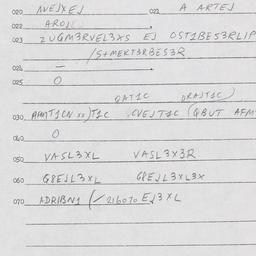 020 AVEJXEJ 021 A ARTEJ
022 AROJC
023 ZUGM3RVEL3XS EJ OST1BES3RLIP
/S+MEKT3RBES3R
024 —
025 O
QAT1C DRAJT1C)
030 AFMT1CN T1C .CVEJT1C (QBUT AFM
040 O
050 VASL3XL VASL3X3R
060 G8EJL3XL G8EJLXL3X
070 ADRIBN1 (/216070 EJ3XL